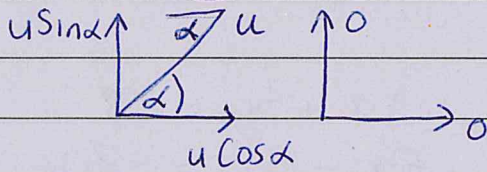 uSinα α u 0
α
uCosα 0